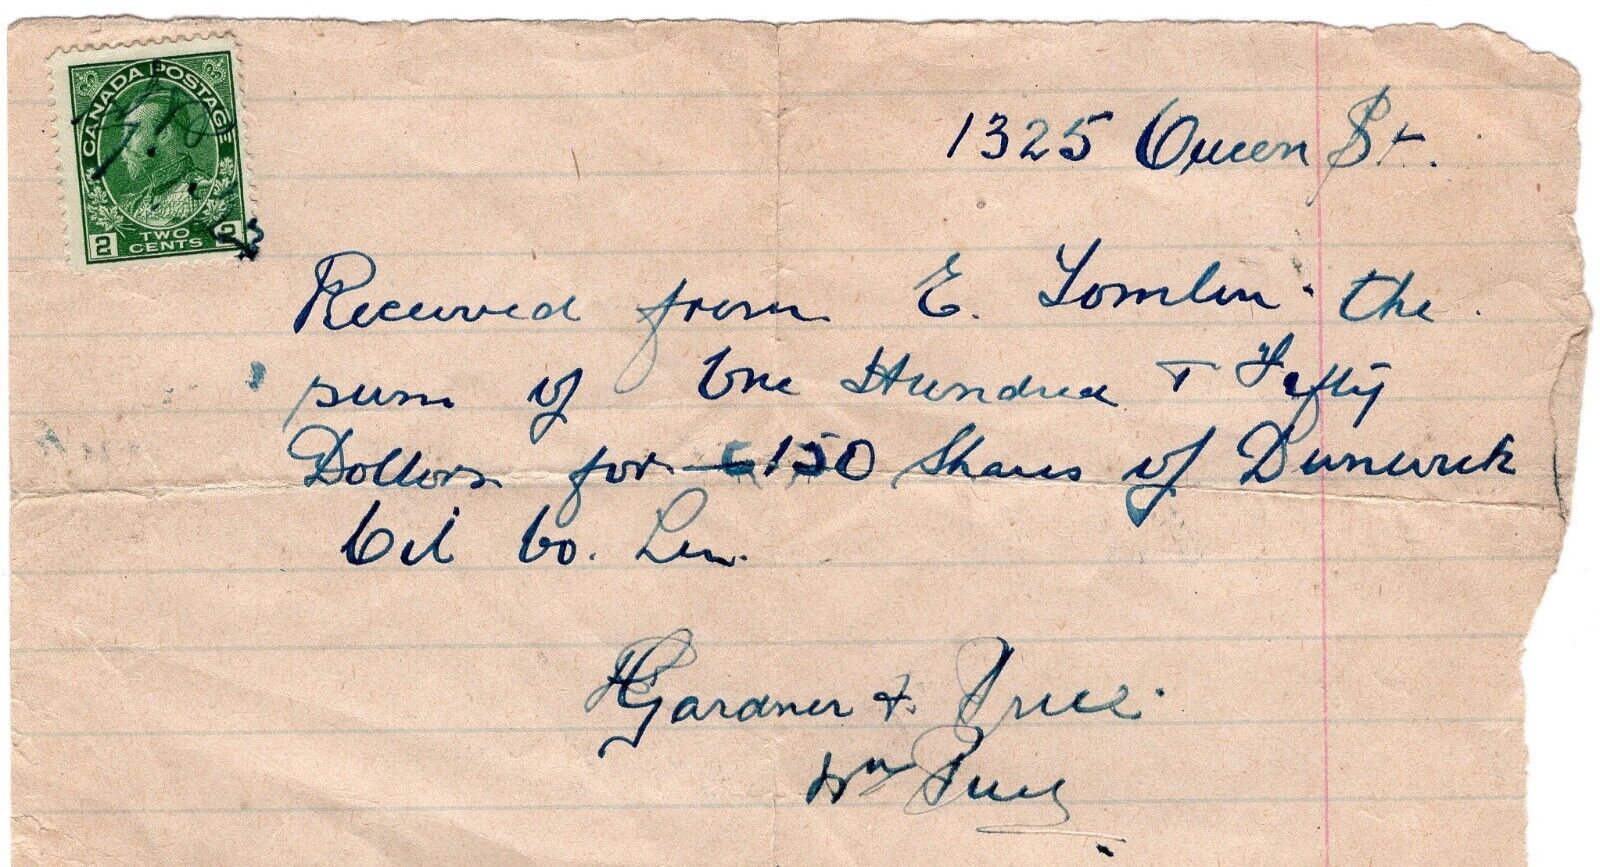 CANADA POSTAGE
2 TWO CENTS 2
1325 Queen St.
Received from E. Tomlin the
sum of One Hundred + Fifty
Dollars for 150 Shares of Dunwick
Oil Co. Lim.
Gardner & Price
Wm Price